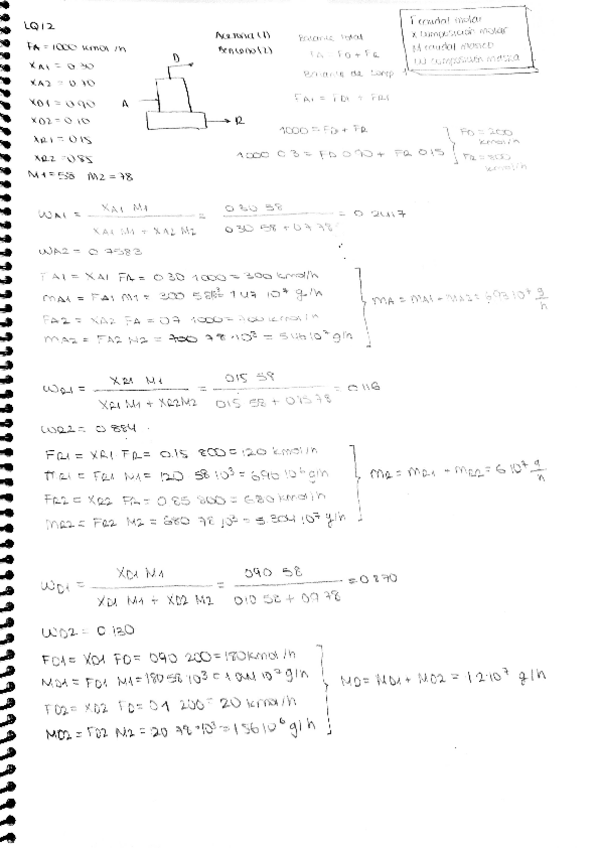 LQ12
FA = 1000 kmol/h
XA1 = 0.30
XA2 = 0.70
XD1 = 0.90
XD2 = 0.10
XR1 = 0.15
XR2 = 0.85
M1 = 58 M2 = 78
D
A
R
Acetona (1)
Benceno (2)
Balance total
FA = FD + FR
Balance de comp. 1
FA1 = FD1 + FR1
F caudal molar
X composición molar
M caudal másico
W composición másica
1000 = FD + FR
1000 0.3 = FD 0.90 + FR 0.15
FD = 200 kmol/h
FR = 800 kmol/h
WA1 = XA1 M1 / XA1 M1 + XA2 M2 = 0.30 58 / 0.30 58 + 0.7 78 = 0.2417
WA2 = 0.7583
FA1 = XA1 FA = 0.30 1000 = 300 kmol/h
mA1 = FA1 M1 = 300 58 8³ = 1.47 10⁷ g/h
FA2 = XA2 FA = 0.7 1000 = 700 kmol/h
mA2 = FA2 M2 = 700 78·10³ = 5.46 10⁷ g/h
mA = mA1 + mA2 = 6.93 10⁷ g/h
WR1 = XR1 M1 / XR1 M1 + XR2 M2 = 0.15 58 / 0.15 58 + 0.15 78 = 0.116
WR2 = 0.884
FR1 = XR1 FR = 0.15 800 = 120 kmol/h
mR1 = FR1 M1 = 120 58 10³ = 6.96 10⁶ g/h
FR2 = XR2 FR = 0.85 800 = 680 kmol/h
mR2 = FR2 M2 = 680 78 10³ = 5.304 10⁷ g/h
mR = mR1 + mR2 = 6 10⁷ g/h
WD1 = XD1 M1 / XD1 M1 + XD2 M2 = 0.90 58 / 0.10 58 + 0.9 78 = 0.870
WD2 = 0.130
FD1 = XD1 FD = 0.90 200 = 180 kmol/h
MD1 = FD1 M1 = 180 58 10³ = 1.044 10⁷ g/h
FD2 = XD2 FD = 0.1 200 = 20 kmol/h
MD2 = FD2 M2 = 20 78·10³ = 1.56 10⁶ g/h
MD = MD1 + MD2 = 1.2·10⁷ g/h